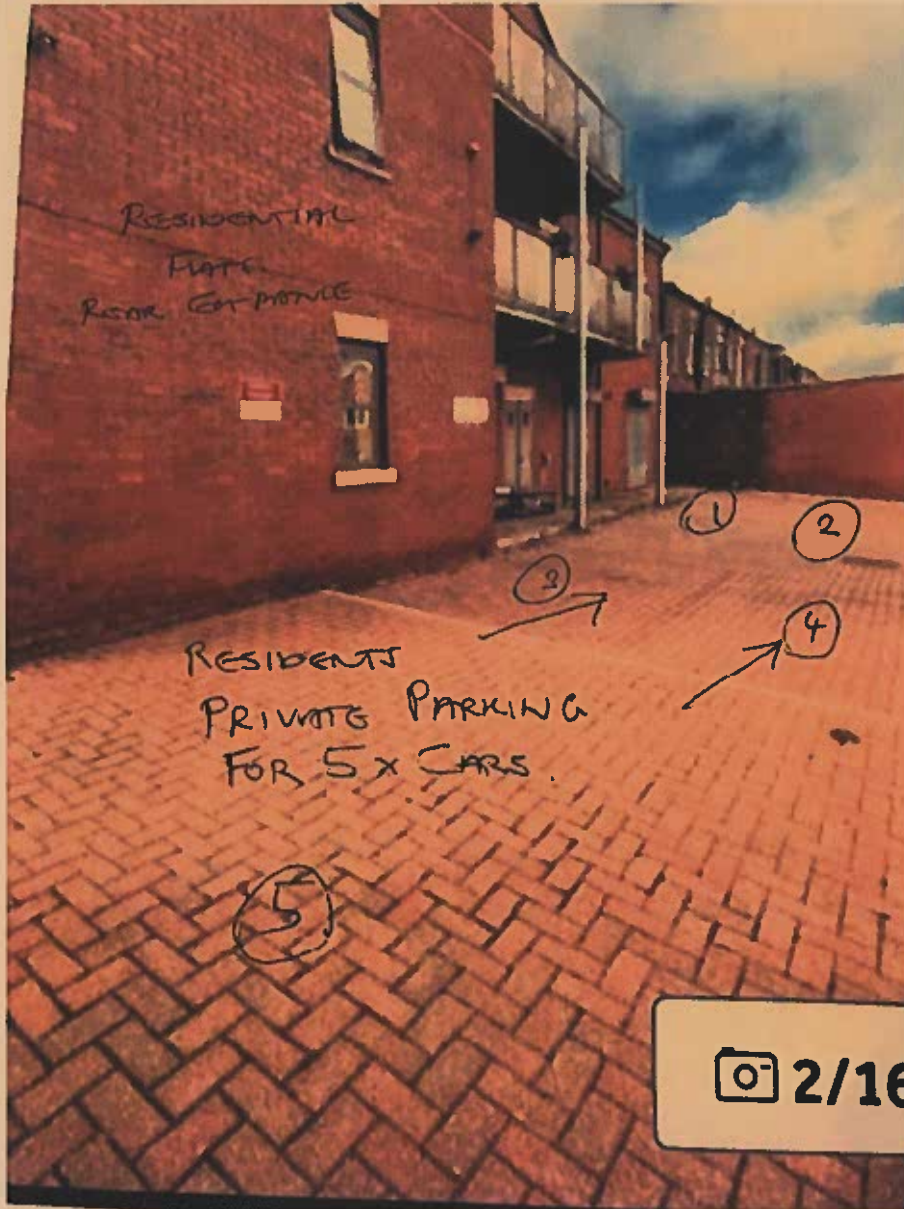 RESIDENTIAL
FLATS.
REAR ENTRANCE
1
2
3
4
RESIDENTS
PRIVATE PARKING
FOR 5 X CARS.
5
2/16